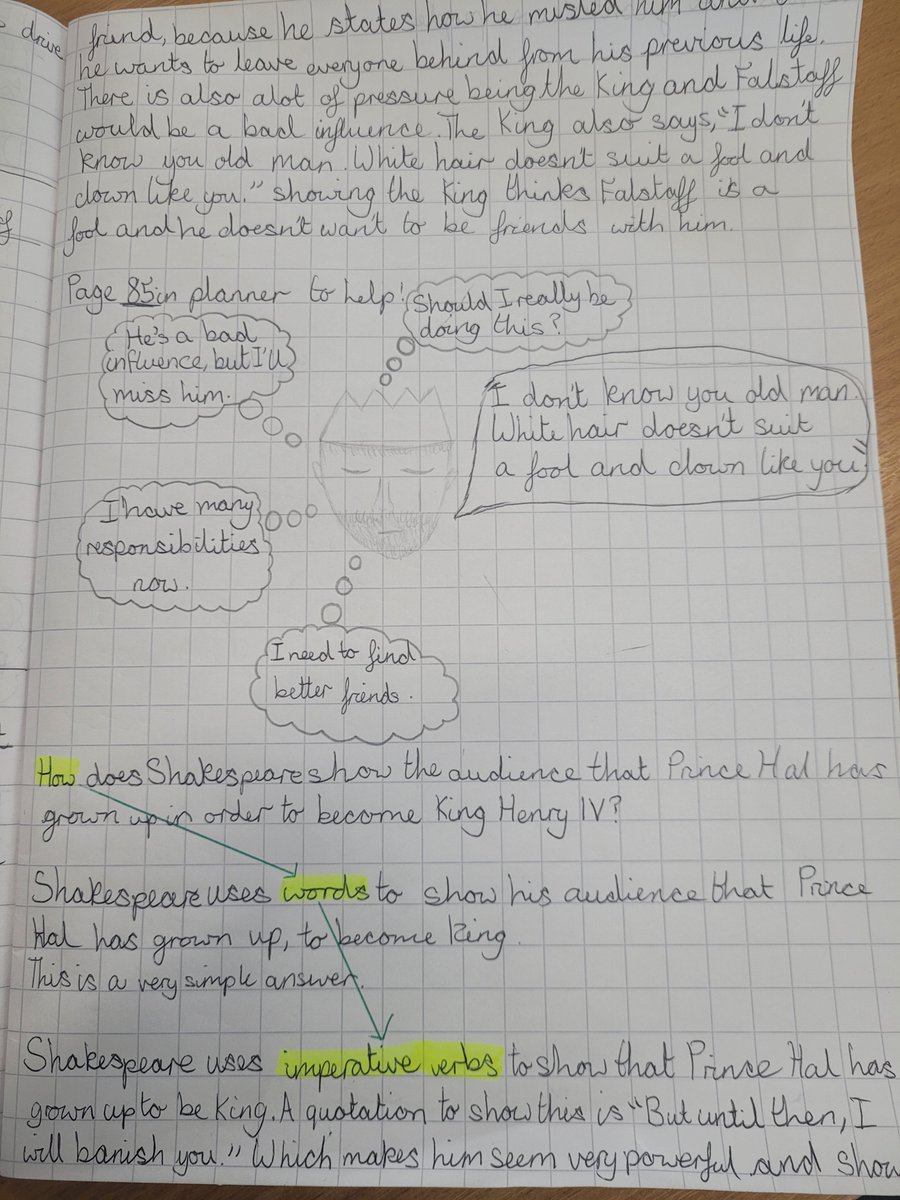 drive
friend, because he states how he misled him and
he wants to leave everyone behind from his previous life.
There is also alot of pressure being the King and Falstaff
would be a bad influence. The King also says, "I don't
know you old man. White hair doesn't suit a fool and
clown like you." showing the King thinks Falstaff is a
fool and he doesn't want to be friends with him.
Page 85 in planner to help!
Should I really be
doing this?
He's a bad
influence, but I'll
miss him.
"I don't know you old man.
White hair doesn't suit
a fool and clown like you"
I have many
responsibilities
now.
I need to find
better friends.
How does Shakespeare show the audience that Prince Hal has
grown up in order to become King Henry IV?
Shakespeare uses words to show his audience that Prince
Hal has grown up, to become King.
This is a very simple answer.
Shakespeare uses imperative verbs to show that Prince Hal has
grown up to be King. A quotation to show this is "But until then, I
will banish you." Which makes him seem very powerful and show